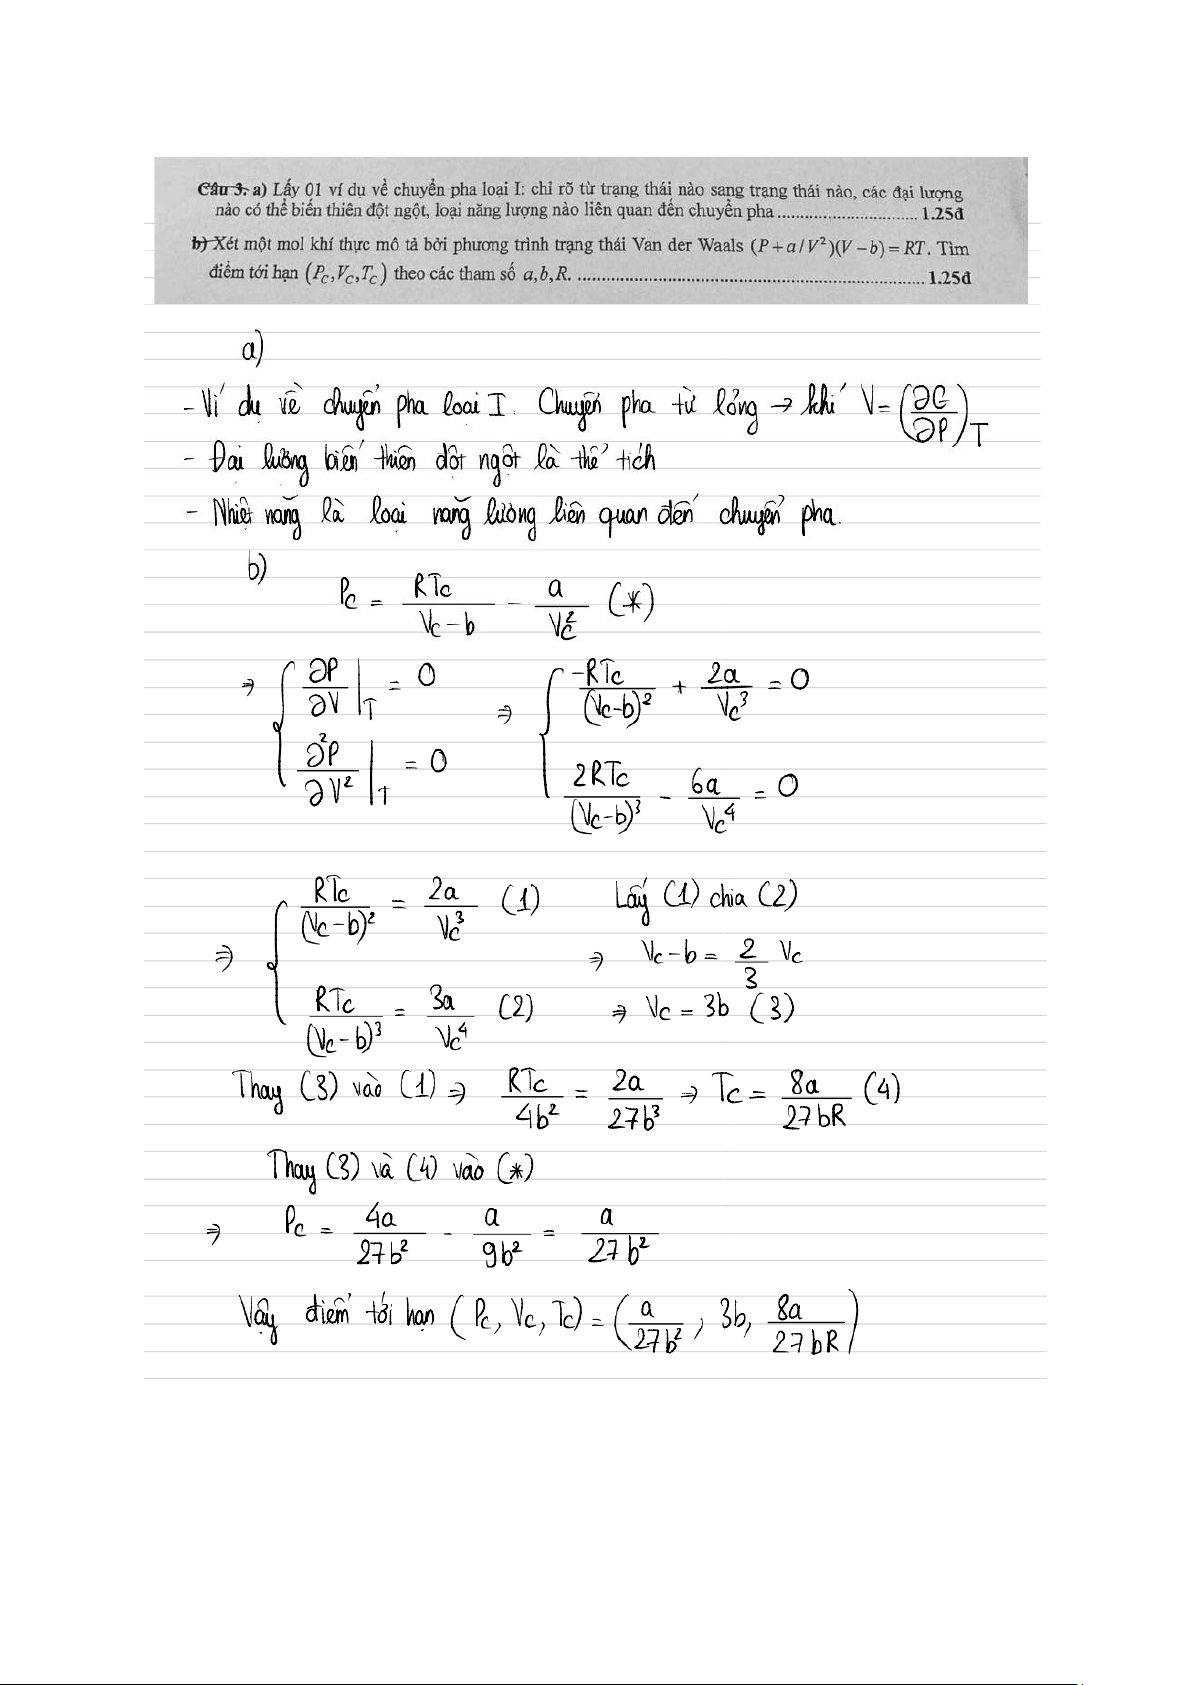 Câu 3. a) Lấy 01 ví dụ về chuyển pha loại I: chỉ rõ từ trạng thái nào sang trạng thái nào, các đại lượng
nào có thể biến thiên đột ngột, loại năng lượng nào liên quan đến chuyển pha ............................. 1.25đ
b) Xét một mol khí thực mô tả bởi phương trình trạng thái Van der Waals (P + a/V²)(V − b) = RT. Tìm
điểm tới hạn (P_C, V_C, T_C) theo các tham số a, b, R. ........................................................................... 1.25đ
a)
- Ví dụ về chuyển pha loại I. Chuyển pha từ lỏng → khí V = (∂G/∂P)_T
- Đại lượng biến thiên đột ngột là thể tích
- Nhiệt năng là loại năng lượng liên quan đến chuyển pha.
b)
Pc = RTc/(Vc − b) − a/Vc² (*)
⇒ { ∂P/∂V |_T = 0 ⇒ { −RTc/(Vc−b)² + 2a/Vc³ = 0
∂²P/∂V² |_T = 0 2RTc/(Vc−b)³ − 6a/Vc⁴ = 0
⇒ { RTc/(Vc−b)² = 2a/Vc³ (1) Lấy (1) chia (2)
⇒ Vc − b = 2/3 Vc
RTc/(Vc−b)³ = 3a/Vc⁴ (2) ⇒ Vc = 3b (3)
Thay (3) vào (1) ⇒ RTc/4b² = 2a/27b³ → Tc = 8a/27bR (4)
Thay (3) và (4) vào (*)
⇒ Pc = 4a/27b² − a/9b² = a/27b²
Vậy điểm tới hạn (Pc, Vc, Tc) = (a/27b², 3b, 8a/27bR)